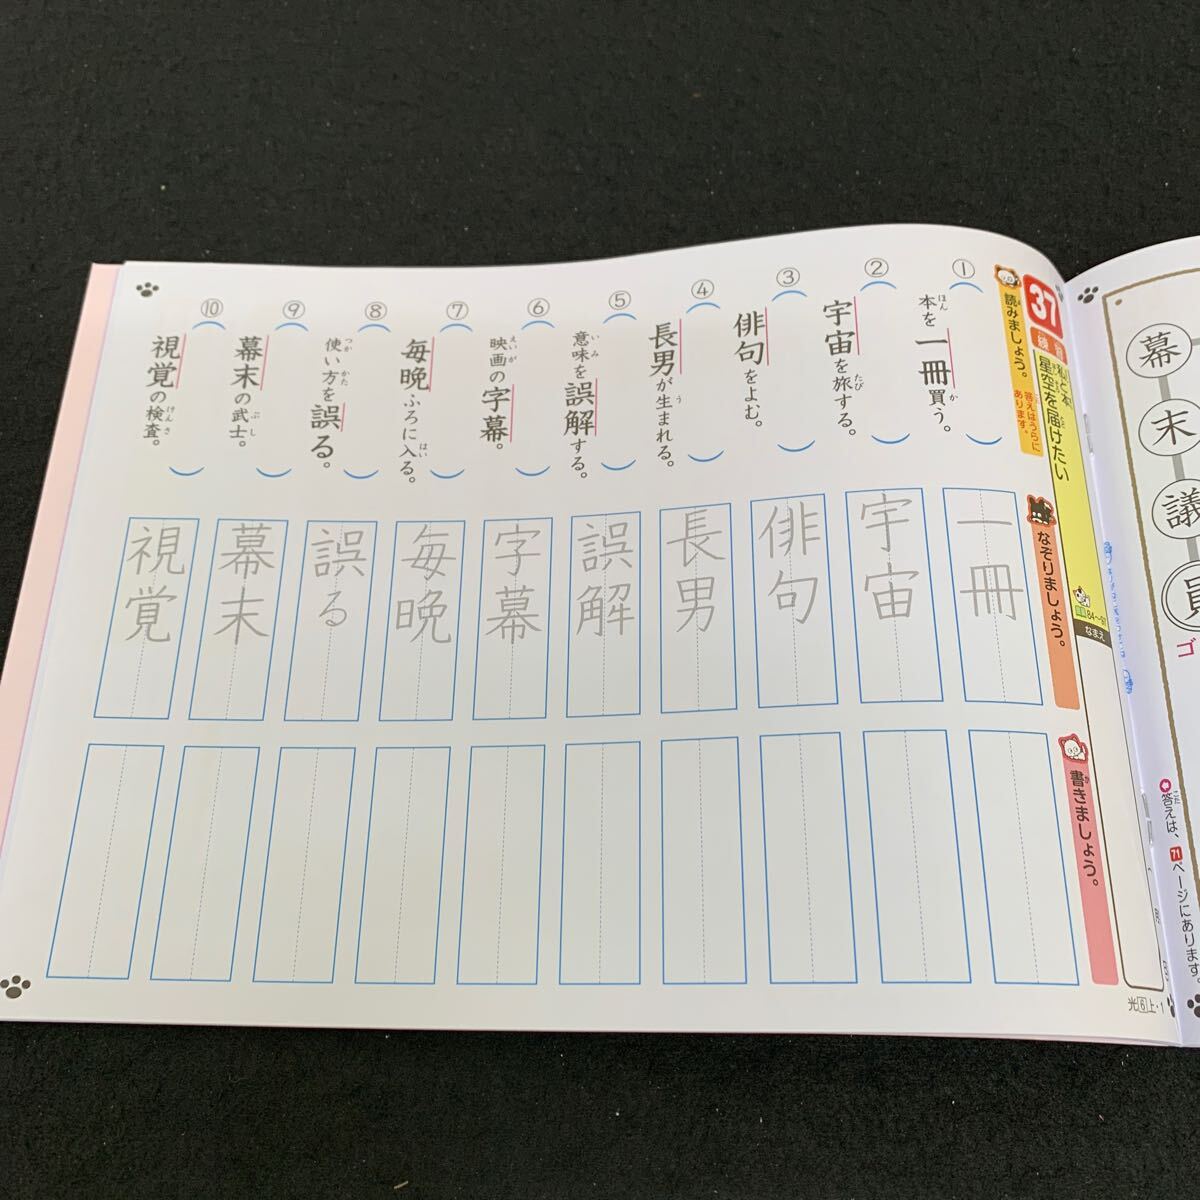 37
練習
星空を届けたい
84〜97
なまえ
読みましょう。
答えはうらに
あります。
① 本を一冊買う。
② 宇宙を旅する。
③ 俳句をよむ。
④ 長男が生まれる。
⑤ 意味を誤解する。
⑥ 映画の字幕。
⑦ 毎晩ふろに入る。
⑧ 使い方を誤る。
⑨ 幕末の武士。
⑩ 視覚の検査。
なぞりましょう。
一冊
宇宙
俳句
長男
誤解
字幕
毎晩
誤る
幕末
視覚
書きましょう。
光6上・1
幕
末
議
員
ゴ
答えは、71ページにあります。